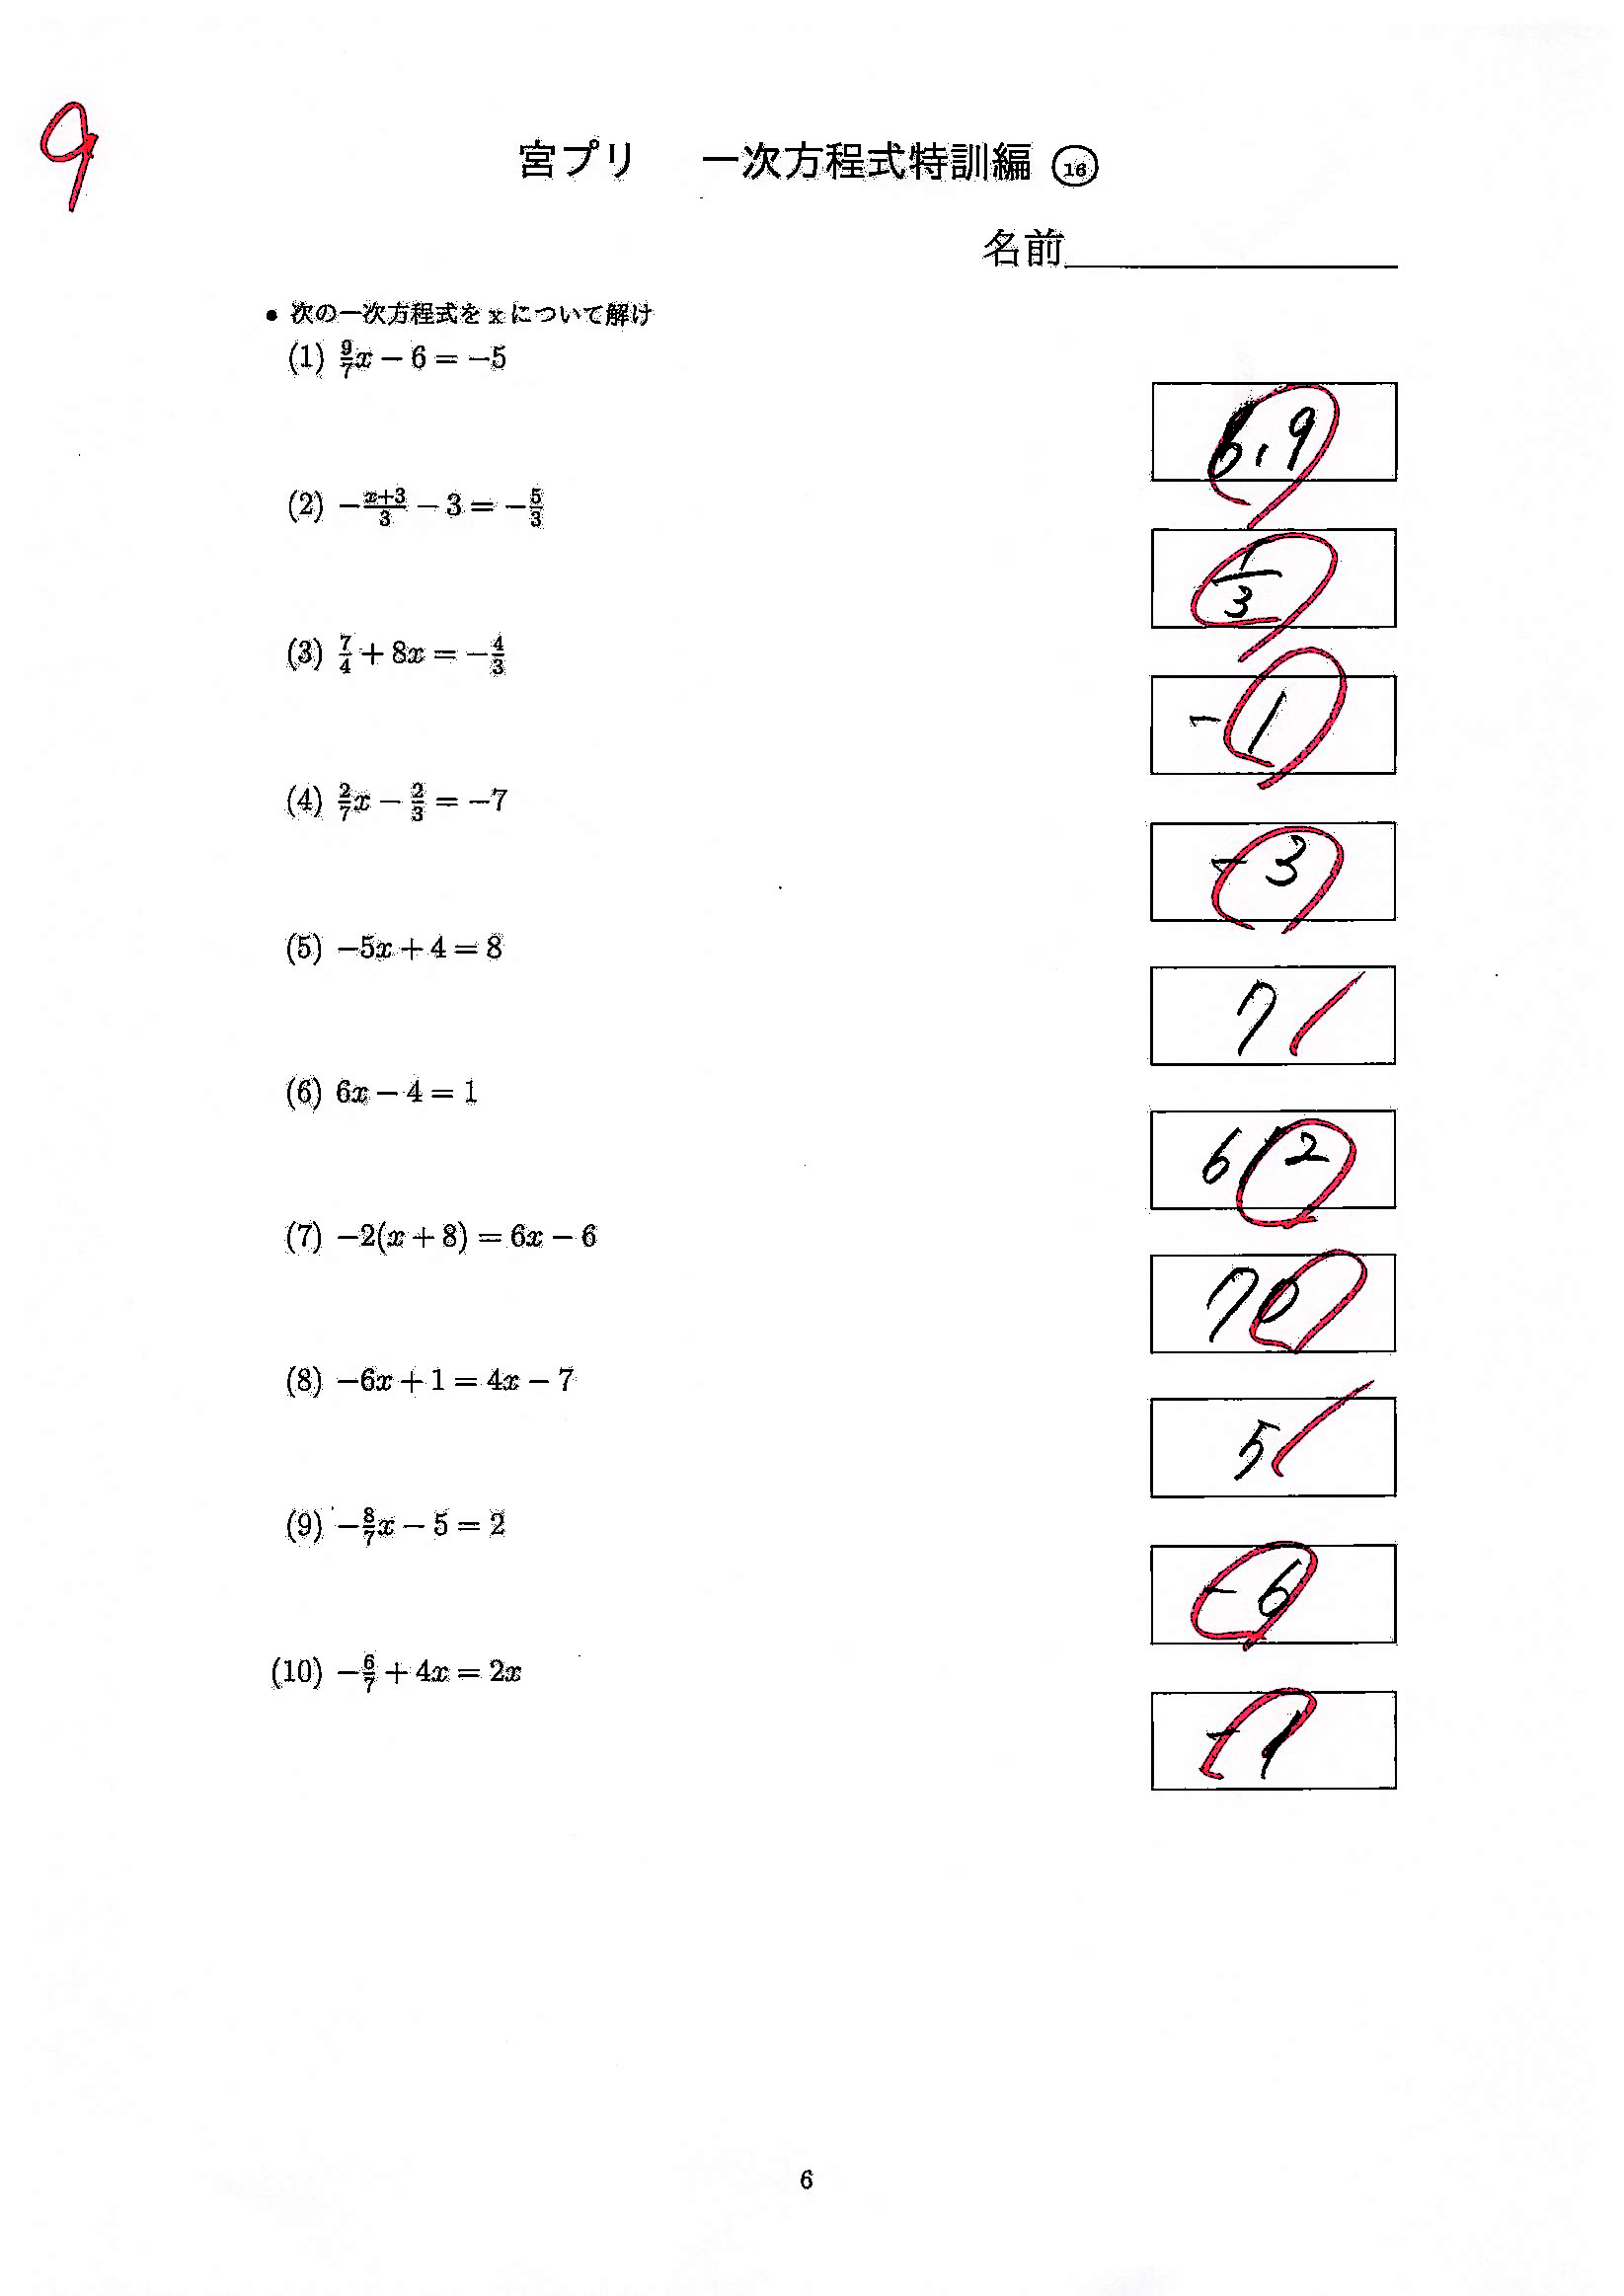 9
宮プリ 一次方程式特訓編 ⑯
名前
• 次の一次方程式を x について解け
(1) 9/7x − 6 = −5
6,9
(2) −(x+3)/3 − 3 = −5/3
1/3
(3) 7/4 + 8x = −4/3
-1
(4) 2/7x − 2/3 = −7
-3
(5) −5x + 4 = 8
7
(6) 6x − 4 = 1
612
(7) −2(x + 8) = 6x − 6
70
(8) −6x + 1 = 4x − 7
5
(9) −8/7x − 5 = 2
-6
(10) −6/7 + 4x = 2x
-1
6